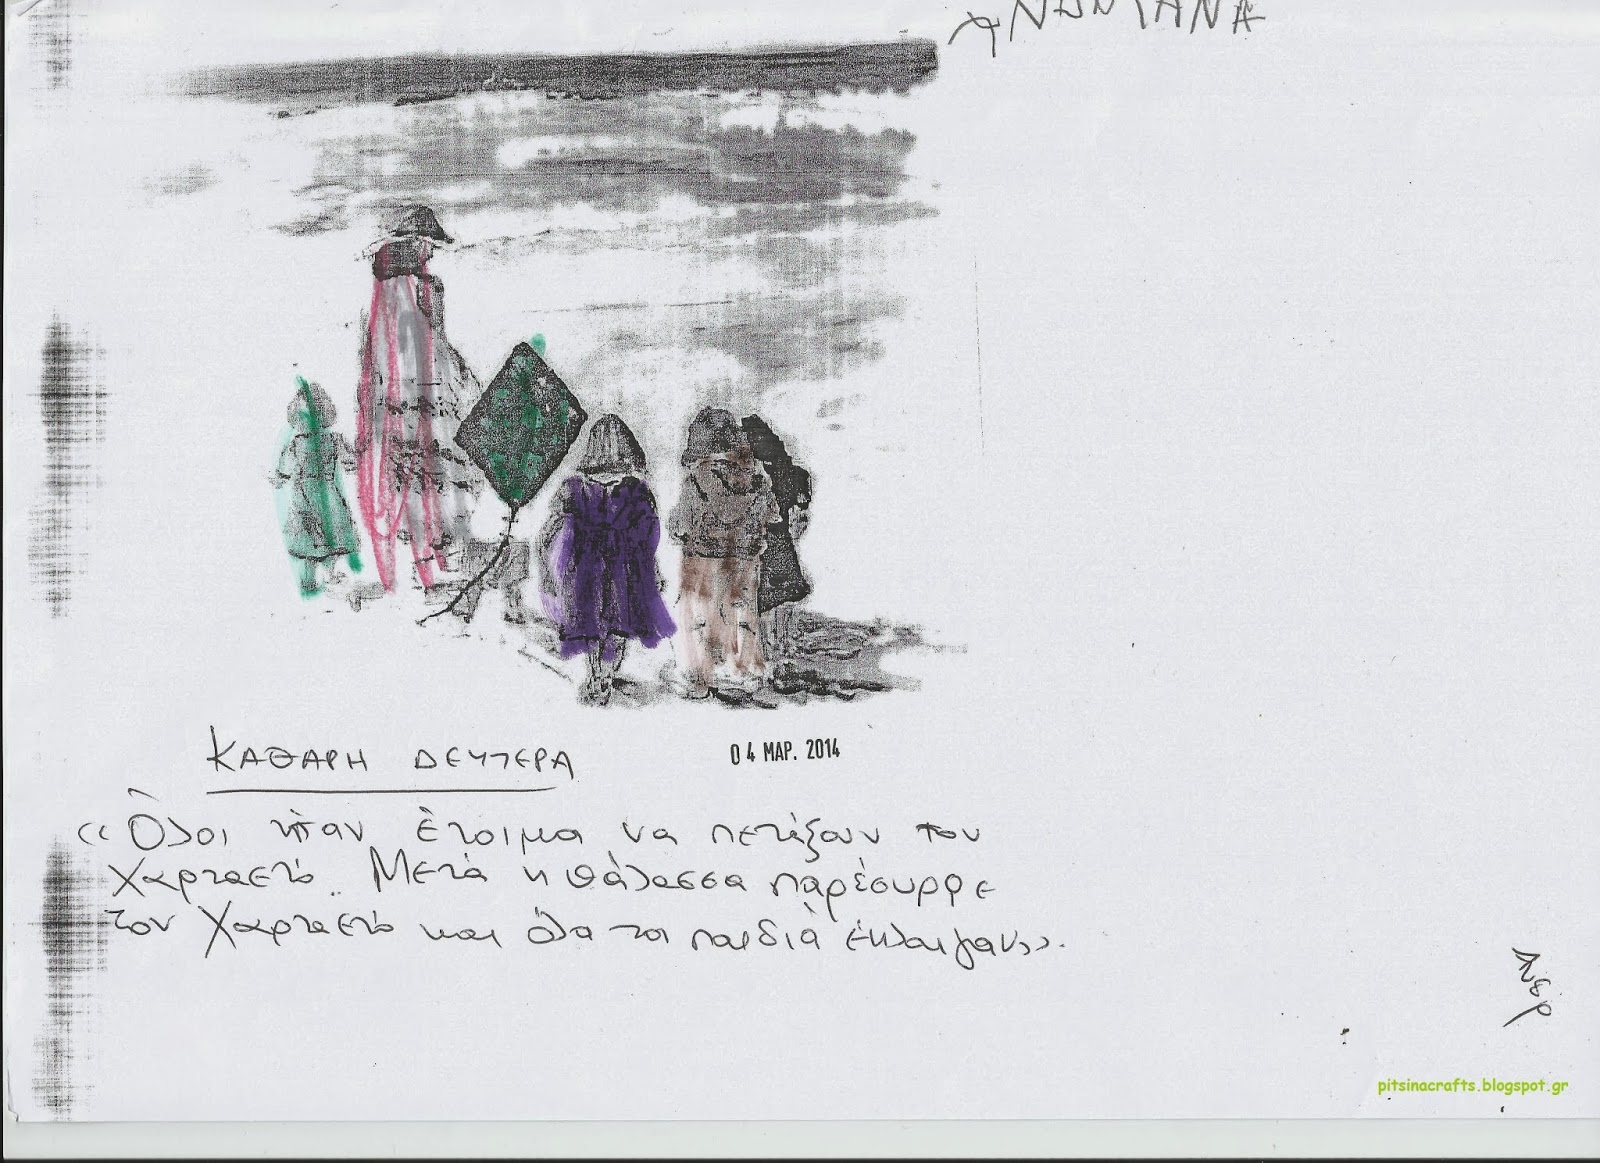 ΚΑΘΑΡΗ ΔΕΥΤΕΡΑ
04 ΜΑΡ. 2014
«Όλοι ήταν έτοιμα να πετάξουν τον
χαρταετό. Μετά η θάλασσα παρέσυρρε
τον χαρταετό και όλα τα παιδιά έκλαιγαν».
pitsinacrafts.blogspot.gr